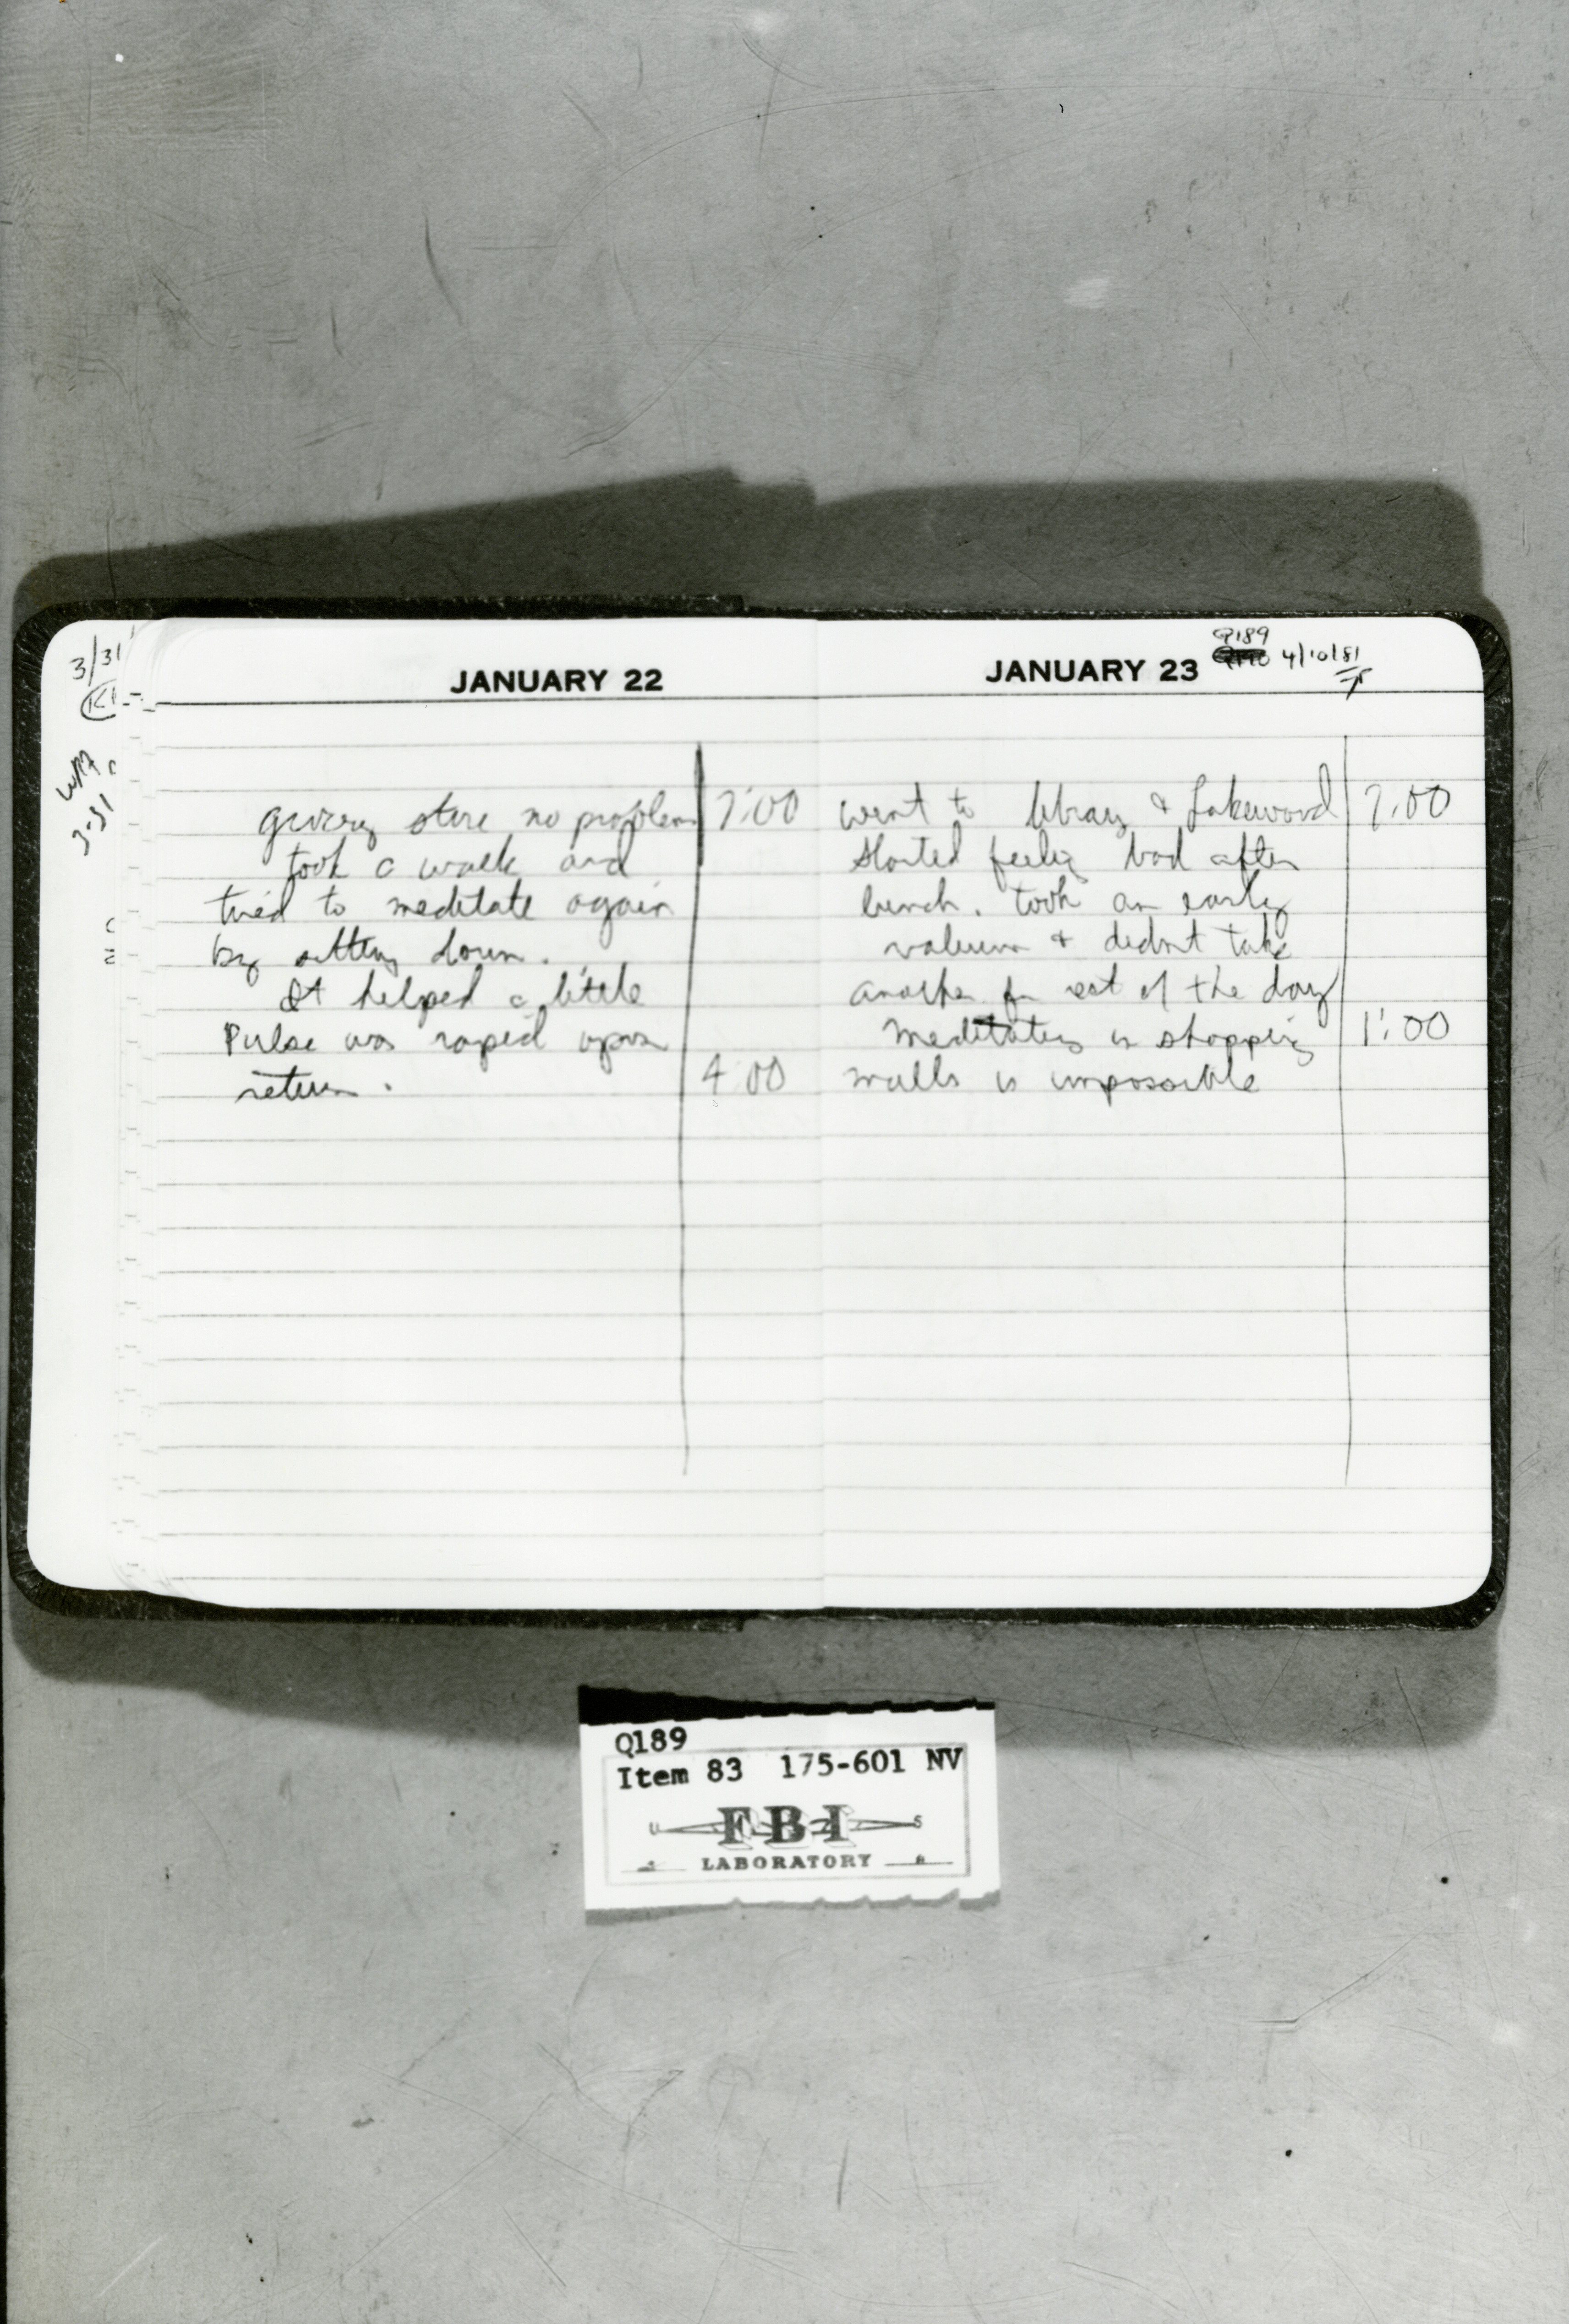 3/31
JANUARY 22
grocery store no problem 7:00
took a walk and
tried to meditate again
by sitting down.
It helped a little
Pulse was rapid upon
return. 4 00
WM
3-31
JANUARY 23
Q189
4/10/81
went to library & Lakewood 7:00
started feeling bad after
lunch. took an early
valium & didnt take
another for rest of the day
meditating in shopping 1:00
malls is impossible
Q189
Item 83 175-601 NV
U S
FBI
LABORATORY